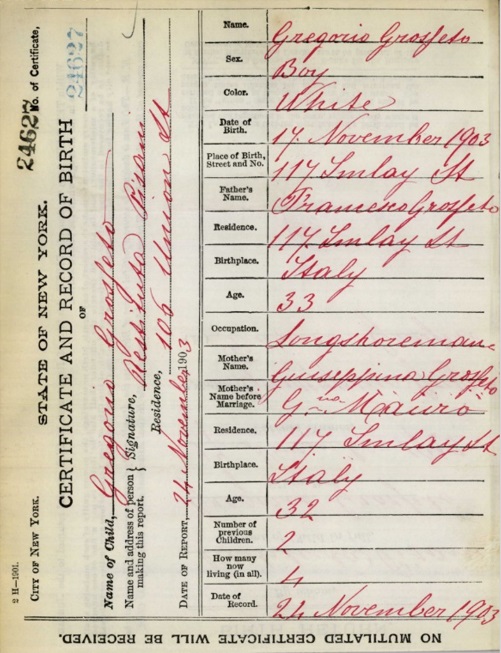 2 H-1901.
CITY OF NEW YORK.
STATE OF NEW YORK.
24627 No. of Certificate,
CERTIFICATE AND RECORD OF BIRTH
24627
OF
Name of Child, Gregorio Grosfeto
Name and address of person making this report. } Signature, Restituta Pisani
Residence, 106 Union St
DATE OF REPORT, 24 November 1903
Name. Gregorio Grosfeto
Sex. Boy
Color. White
Date of Birth. 17. November 1903
Place of Birth, Street and No. 117 Imlay St
Father's Name. Francesco Grosfeto
Residence. 117. Imlay St
Birthplace. Italy
Age. 33
Occupation. Longshoreman
Mother's Name. Guiseppina Grosfeto
Mother's Name before Marriage. G.ina Mauro
Residence. 117 Imlay St
Birthplace. Italy
Age. 32
Number of previous Children. 2
How many now living (in all). 4
Date of Record. 24 November 1903
NO MUTILATED CERTIFICATE WILL BE RECEIVED.